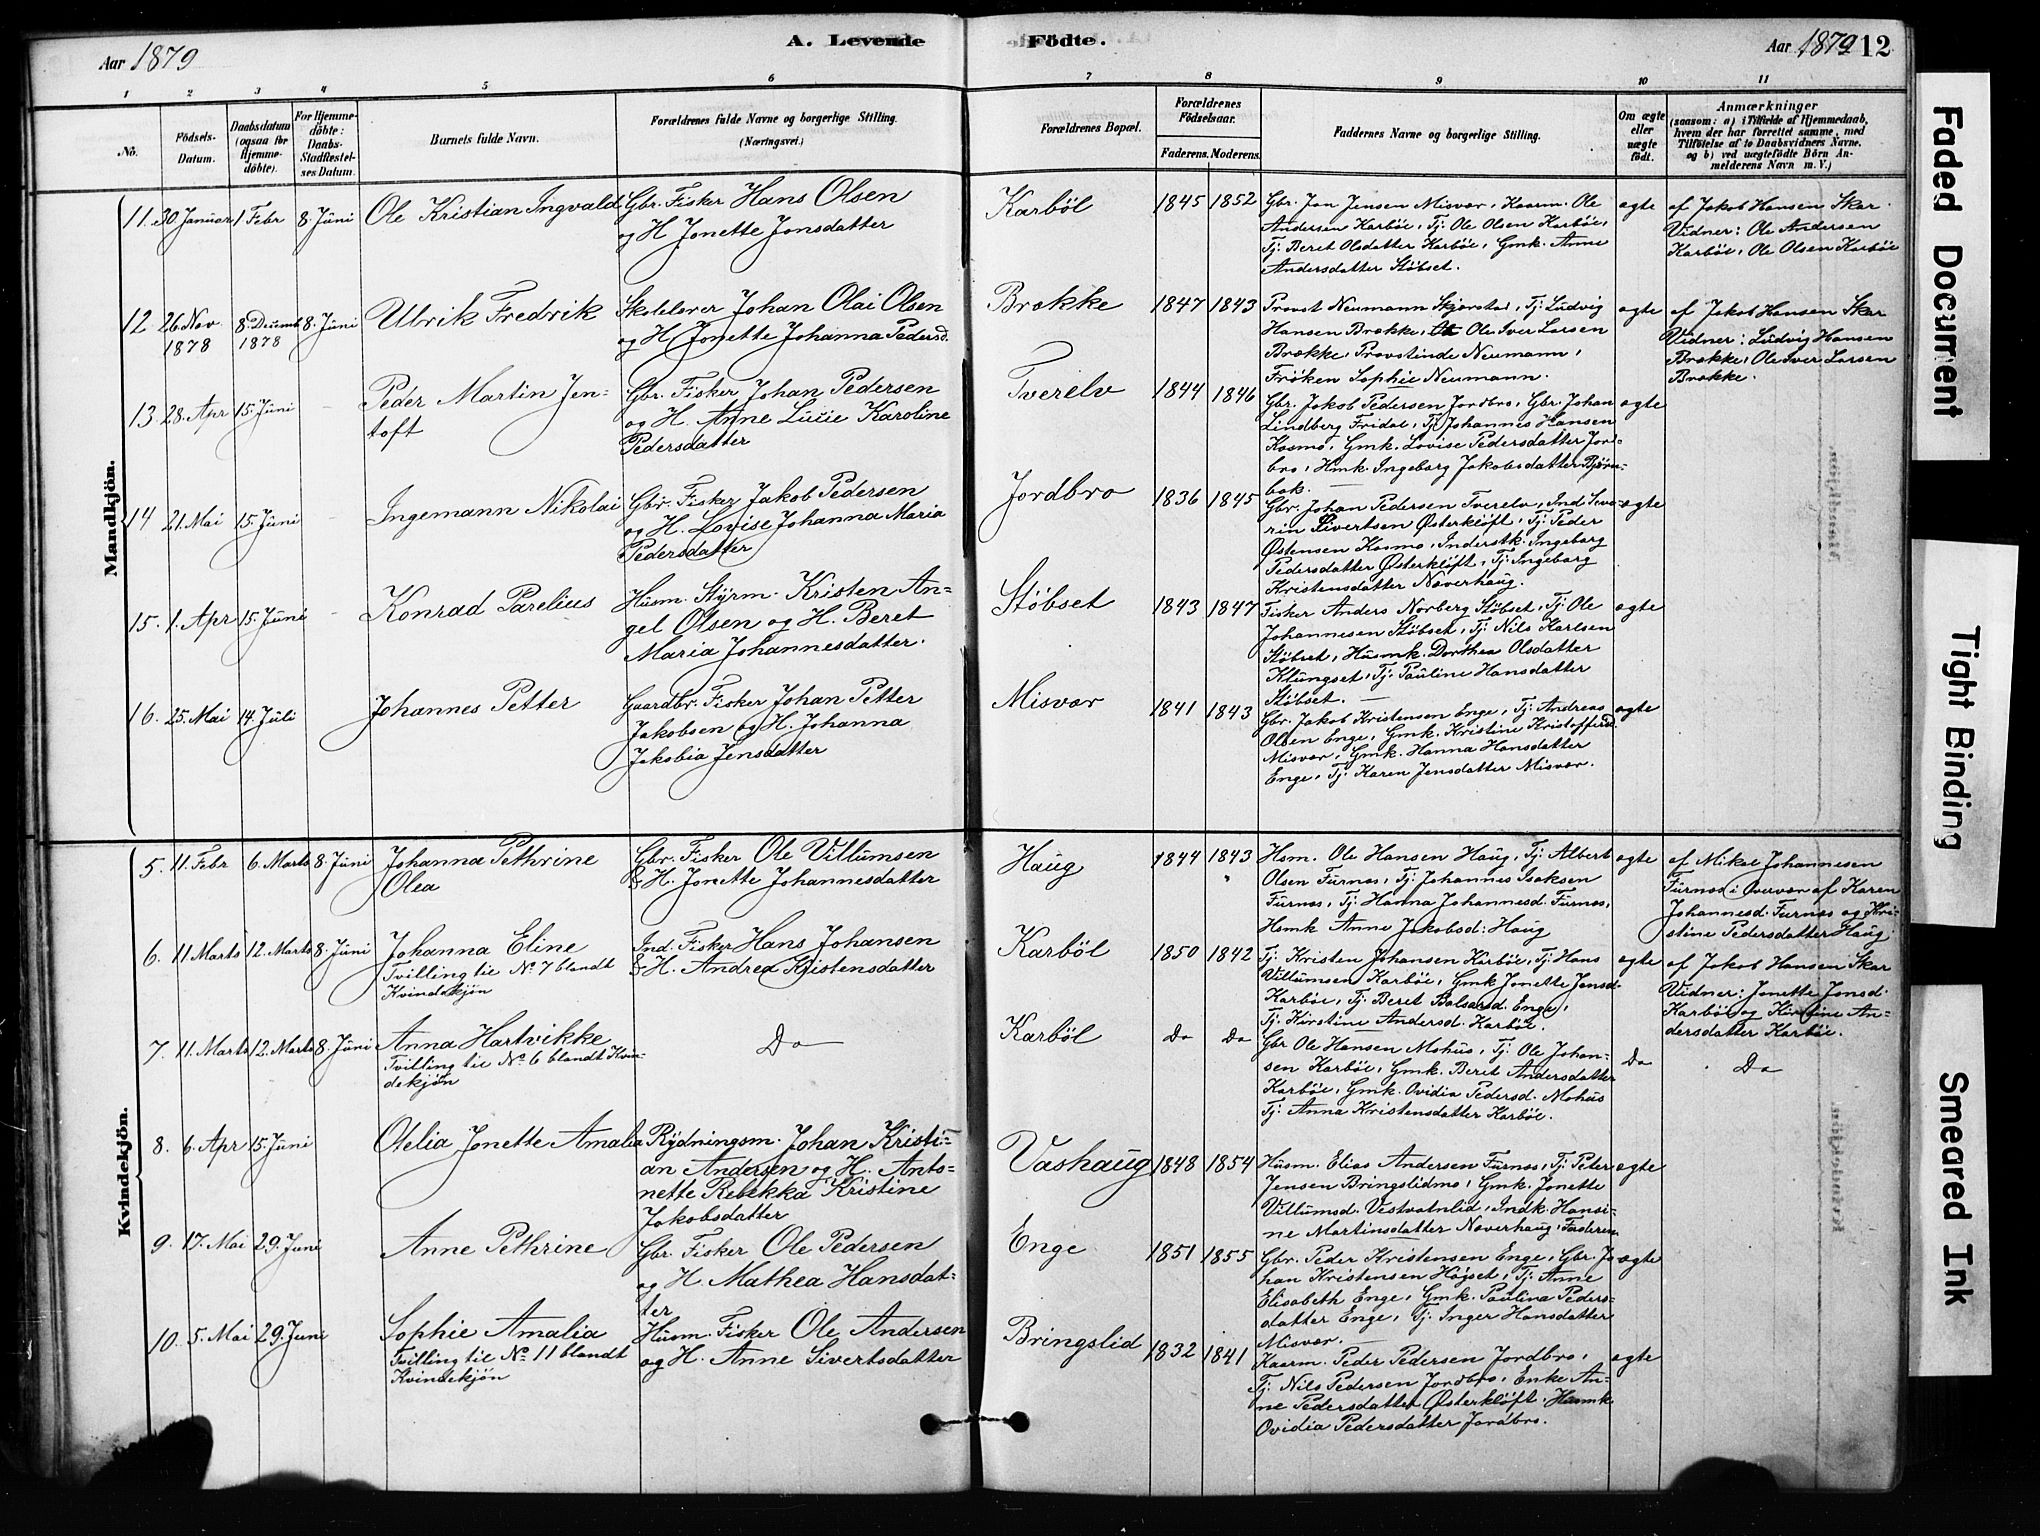 Aar 1879
A. Levende
Födte.
Aar 1879
12
1
2
3
4
5
6
7
8
9
10
11
No.
Födsels-
Datum.
Daabsdatum
(ogsaa for
Hjemme-
döbte).
For Hjemme-
döbte:
Daabs-
Stadfæstel-
ses Datum.
Barnets fulde Navn.
Forældrenes fulde Navne og borgerlige Stilling.
(Næringsvei.)
Forældrenes Bopæl.
Forældrenes
Födselsaar.
Faderens.
Moderens.
Faddernes Navne og borgerlige Stilling.
Om ægte
eller
uægte
födt.
Anmærkninger
(saasom: a) i Tilfælde af Hjemmedaab,
hvem der har forrettet samme, med
Tilföielse af to Daabsvidners Navne.
og b) ved uægtefödte Börn An-
melderens Navn m. V.)
Mandkjön.
11. 30. Januar 1 Febr 8. Juni Ole Kristian Ingvald Gbr. Fisker Hans Olsen
og H. Jonette Jonsdatter
Karböl 1845 1852
Gbr. Jon Jensen Misvær, Kaarm. Ole
Andersen Karböl, Tj. Ole Olsen Karböl,
Tj. Beret Olsdatter Karböl, Gmk. Anne
Andersdatter Støbset.
ægte
af Jakob Hansen Skar.
Vidner: Ole Andersen
Karböl, Ole Olsen Karböl
12 26. Nov 1878 8. Decemb 1878 8. Juni Ulrik Fredrik
Skolelærer Johan Olai Olsen
og H. Jonette Johanna Pedersd.
Brække 1847 1843
Provst Neumann Skjerstad, Tj. Ludvig
Hansen Brække, Ole Iver Larsen
Brække, Provstinde Neumann,
Fröken Sophie Neumann.
ægte
af Jakob Hansen Skar
Vidner: Ludvig Hansen
Brække, Ole Iver Larsen
Brække.
13. 28. Apr 15. Juni Peder Martin Jen-
toft
Gbr. Fisker Johan Pedersen
og H. Anne Lucie Karoline
Pedersdatter
Tverelv 1844 1846
Gbr. Jakob Pedersen Jordbro, Gbr. Johan
Lindberg Fridal, Tj. Johannes Hansen
Kosmo, Gmk. Lovise Pedersdatter Jord-
bro, Hmk. Ingeborg Jakobsdatter Björn-
bak.
ægte
14 21. Mai 15. Juni Ingemann Nikolai
Gbr. Fisker Jakob Pedersen
og H. Lovise Johanna Maria
Pedersdatter
Jordbro 1836 1845
Gbr. Johan Pedersen Tverelv, Ind. Seve-
rin Sivertsen Østerkløft, Tj. Peder
Østensen Kosmo, Inderstk. Ingeborg
Pedersdatter Østerkløft, Tj. Ingeborg
Kristensdatter Naverhaug.
ægte
15. 1. Apr 15. Juni Konrad Parelius
Husm. Styrm. Kristen An-
gel Olsen og H. Beret
Maria Johannesdatter.
Støbset 1843 1847
Fisker Anders Norberg Støbset, Tj. Ole
Johannesen Støbset, Tj. Nils Karlsen
Støbset, Husmk. Dorthea Olsdatter
Klungset, Tj. Pauline Hansdatter
Støbset.
ægte
16. 25. Mai 14. Juli Johannes Petter
Gaardbr. Fisker Johan Petter
Jakobsen og H. Johanna
Jakobia Jensdatter
Misvær 1841 1843
Gbr. Jakob Kristensen Enge, Tj. Andreas
Olsen Enge, Gmk. Kristine Kristoffersd.
Misvær, Gmk. Hanna Hansdatter
Enge, Tj. Karen Jensdatter Misvær.
ægte
Kvindekjön.
5. 11. Febr 6. Marts 8. Juni Johanna Pethrine
Olea
Gbr. Fisker Ole Villumsen
& H. Jonette Johannesdatter
Haug 1844 1843
Hsm. Ole Hansen Haug, Tj. Albert
Olsen Furnes, Tj. Johannes Isaksen
Furnes, Tj. Hanna Johannesd. Furnes,
Hsmk Anne Jakobsd. Haug
ægte
af Mikal Johannesen
Furnes i overvær af Karen
Johannesd. Furnes og Kri-
stine Pedersdatter Haug
6. 11 Marts 12. Marts 8. Juni Johanna Eline
Tvilling til No 7 blandt
Kvindekjön
Ind. Fisker Hans Johansen
& H. Andrea Kristensdatter
Karböl 1850 1842
Tj. Kristen Johansen Karböl, Tj. Hans
Villumsen Karböl, Gmk Jonette Jonsd.
Karböl, Tj. Beret Balsarsd. Enge,
Tj. Kirstine Andersd. Karböl.
ægte
af Jakob Hansen Skar
Vidner: Jonette Jonsd.
Karböl og Kirstine An-
dersdatter Karböl.
7. 11. Marts 12. Marts 8. Juni Anna Hartvikke
Tvilling til No 6 blandt Kvin-
dekjön
Do
Karböl Do Do
Gbr Ole Hansen Mohus, Tj. Ole Johan-
sen Karböl, Gmk. Beret Andersdatter
Karböl, Gmk. Ovidia Pedersd. Mohus
Tj. Anna Kristensdatter Karböl.
Do
Do
8. 6. Apr 15. Juni Otelia Jonette Amalia
Rydningsm. Johan Kristi-
an Andersen og H. Anto-
nette Rebekka Kristine
Jakobsdatter
Vashaug 1848 1854
Husm. Elias Andersen Furnes, Tj. Peter
Jensen Bringslidmo, Gmk. Jonette
Villumsd. Vestvatnlid, Indk. Hansi-
ne Martinsdatter Naverhaug, Faderen
ægte
9. 17. Mai 29. Juni Anne Pethrine
Gbr. Fisker Ole Pedersen
og H. Mathea Hansdat-
ter
Enge 1851 1855
Gbr. Peder Kristensen Enge, Gbr. Jo-
han Kristensen Högset, Tj. Anne
Elisabeth Enge, Gmk. Paulina Peders-
datter Enge, Tj. Inger Hansdatter
Misvær.
ægte
10. 5. Mai 29. Juni Sophie Amalia
Tvilling til No 11 blandt
Kvindekjön
Husm. Fisker Ole Andersen
og H. Anne Sivertsdatter
Bringslid 1832 1841
Kaarm. Peder Pedersen Jordbro,
Tj. Nils Pedersen Jordbro, Enke An-
ne Pedersdatter Østerkløft. Husmk.
Ovidia Pedersdatter Jordbro.
ægte
Faded Document
Tight Binding
Smeared Ink